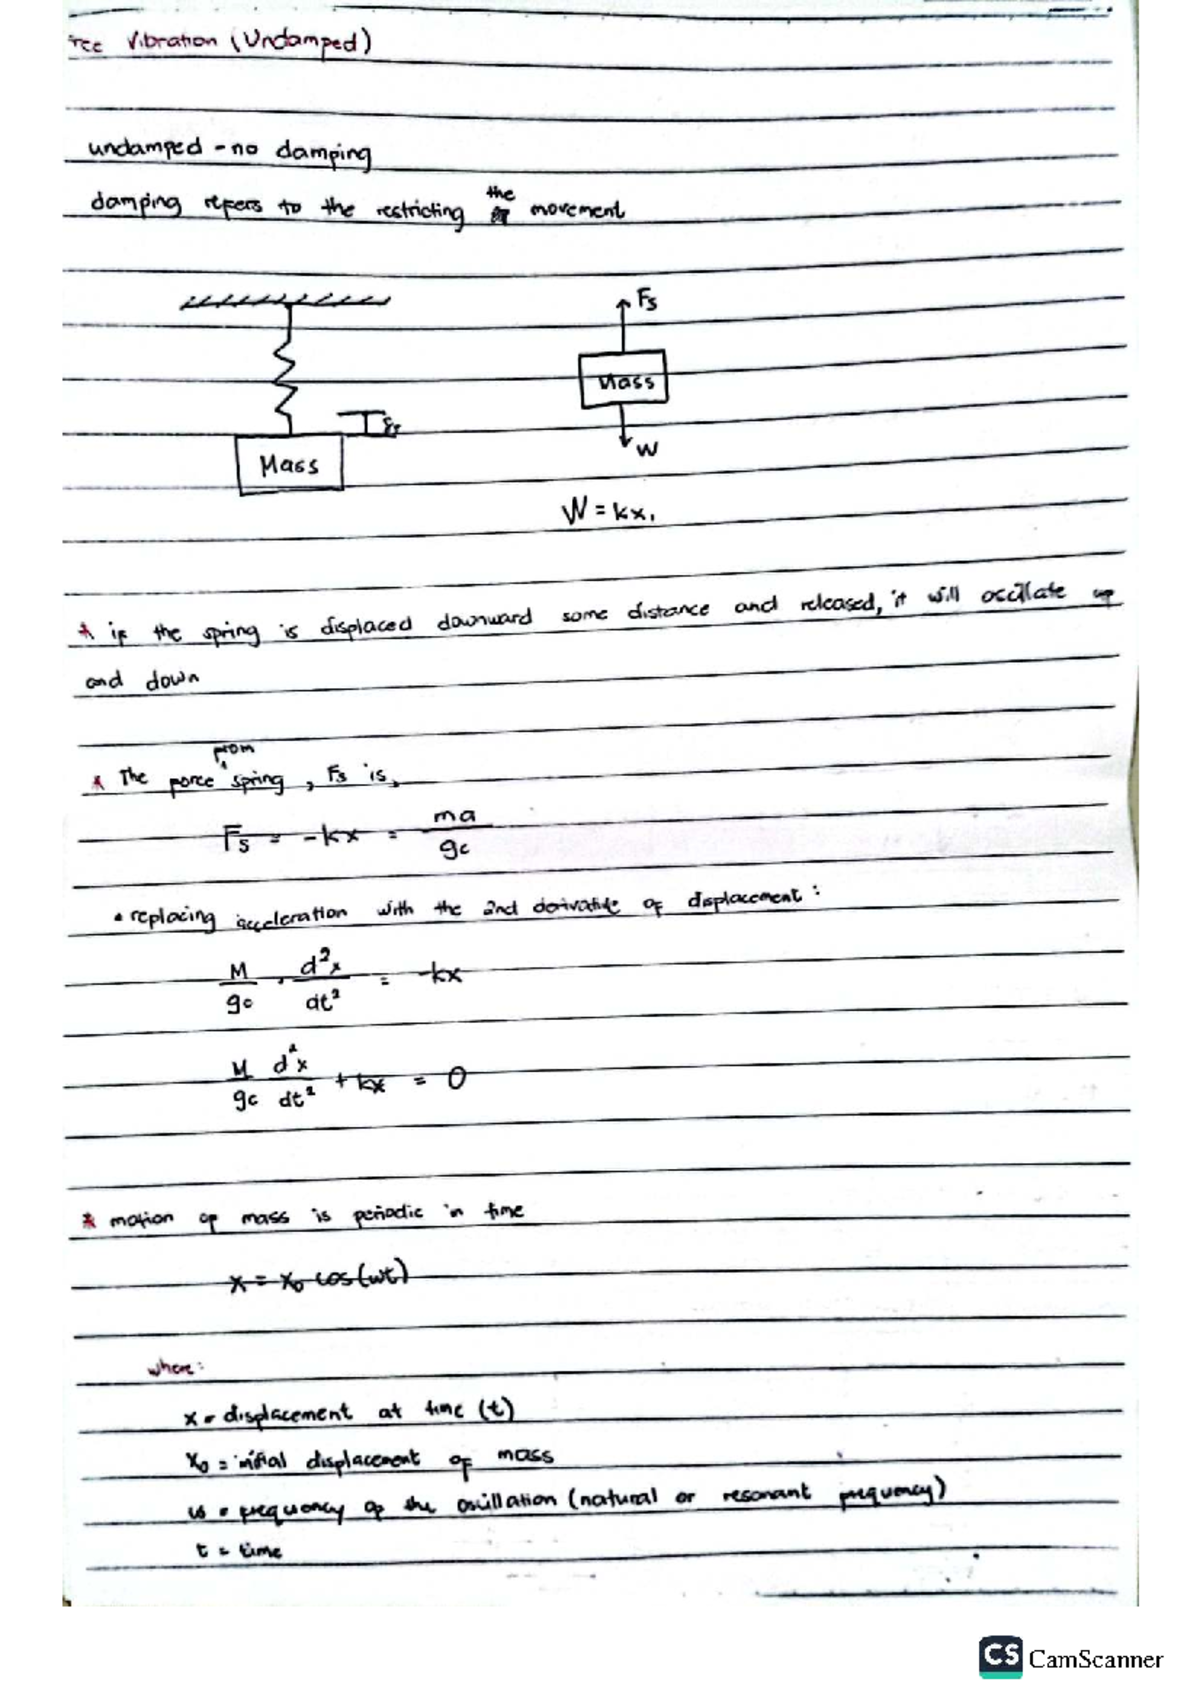 ree Vibration (Undamped)
undamped - no damping
damping refers to the restricting the movement
Fs
Mass
W
Mass
W = kx,
* if the spring is displaced downward some distance and released, it will oscillate up
and down
* The force from spring, Fs is,
Fs = -kx = ma/gc
• replacing acceleration with the 2nd derivative of displacement:
M/gc · d²x/dt² = -kx
M/gc d²x/dt² + kx = 0
* motion of mass is periodic in time
x = x₀ cos(wt)
where:
x = displacement at time (t)
x₀ = initial displacement of mass
w = frequency of the oscillation (natural or resonant frequency)
t = time
CS CamScanner